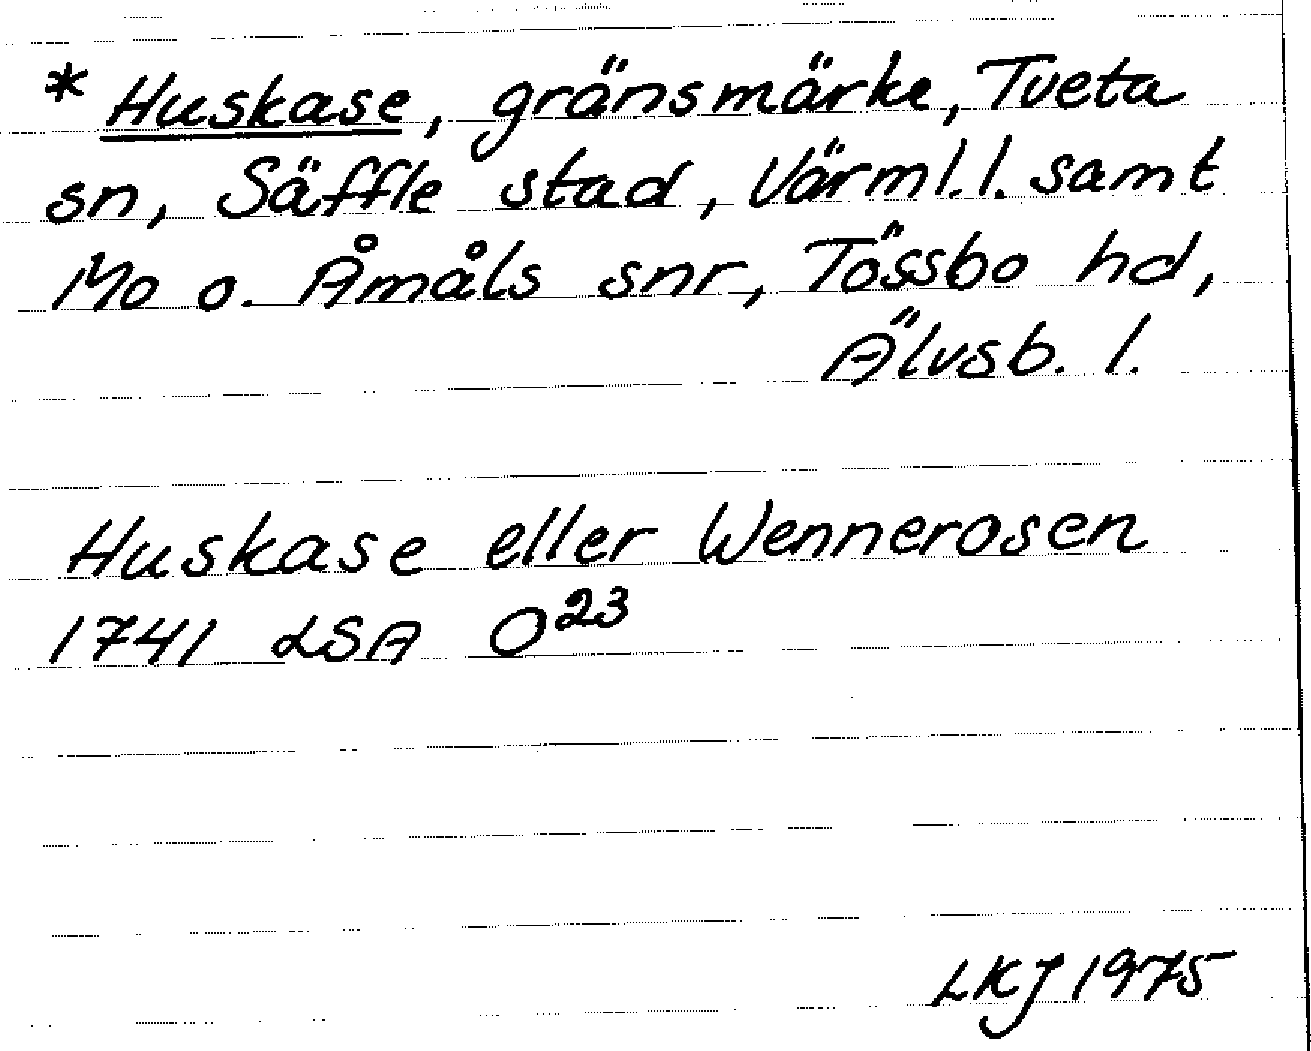 * Huskase, gränsmärke, Tveta
sn, Säffle stad, Värml. l. samt
Mo o. Åmåls snr, Tössbo hd,
Älvsb. l.
Huskase eller Wennerosen
1741 LSA O²³
LKJ 1975